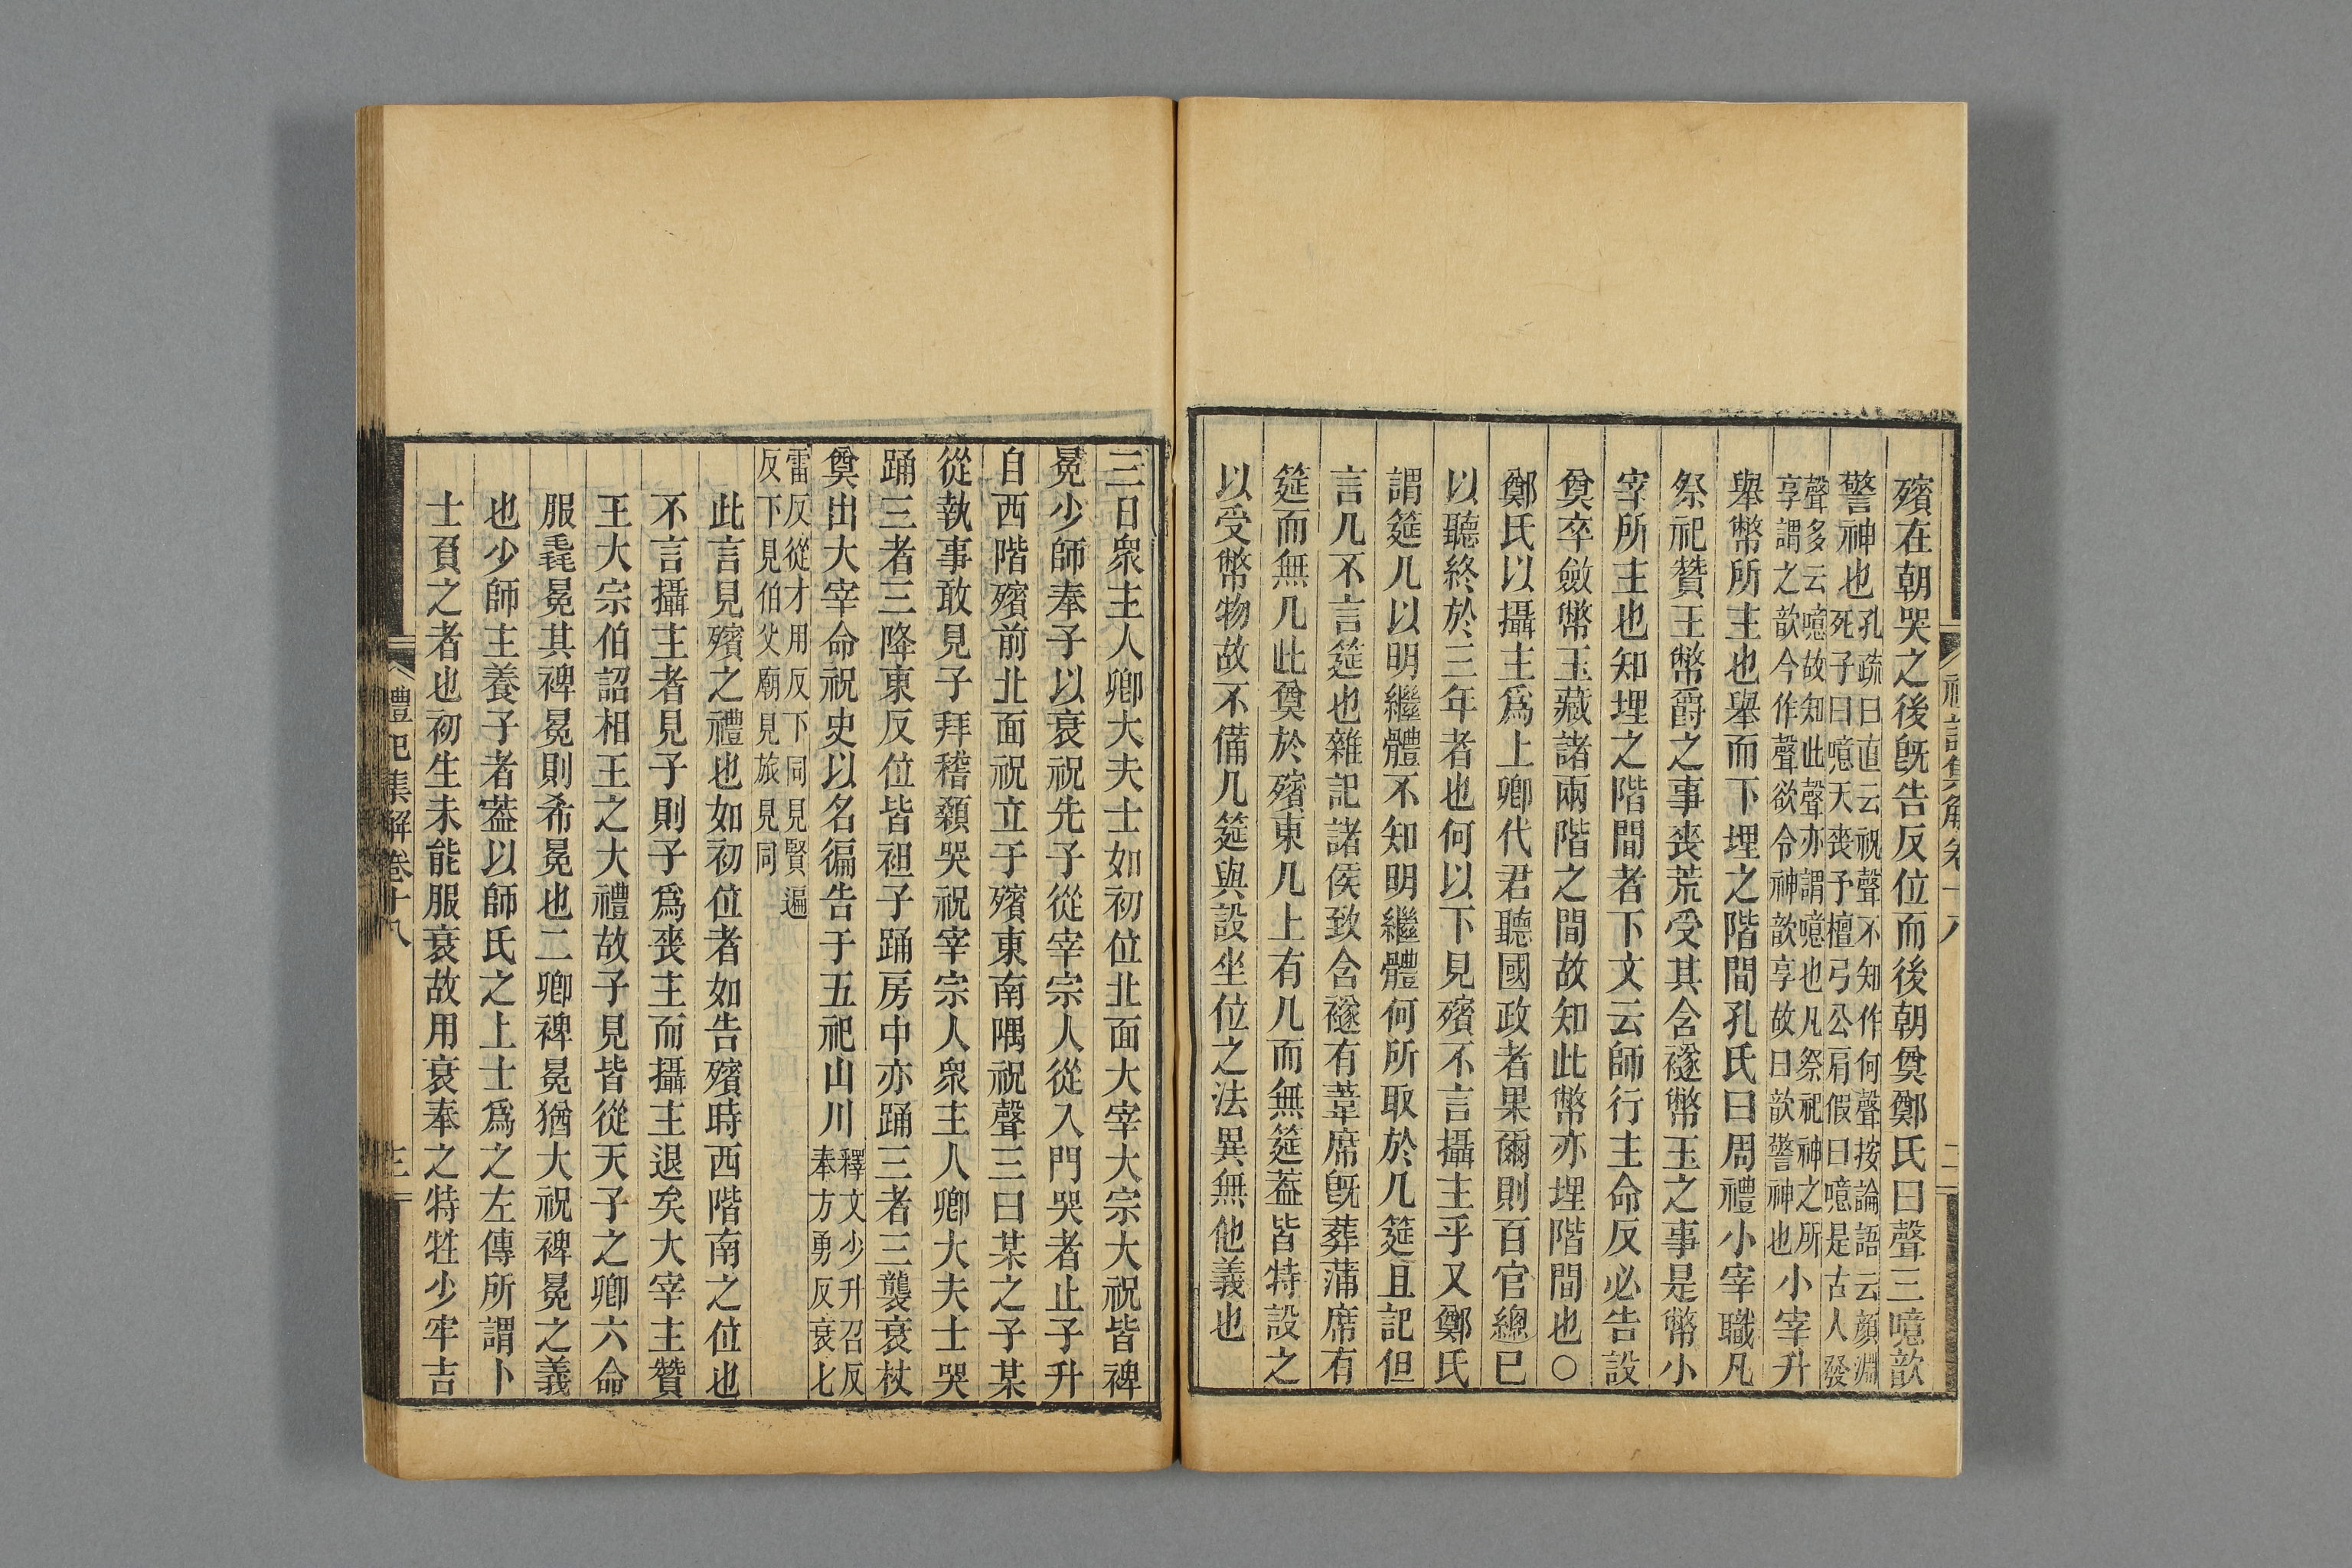 禮記集解卷十八
二
殯在朝哭之後旣告反位而後朝奠鄭氏曰聲三噫歆
警神也
孔疏曰直云祝聲不知作何聲按論語云顔淵
死子曰噫天喪予檀弓公肩假曰噫是古人發
聲多云噫故知此聲亦謂噫也凡祭祀神之所
享謂之歆今作聲欲令神歆享故曰歆警神也
小宰升
舉幣所主也舉而下埋之階間孔氏曰周禮小宰職凡
祭祀贊王幣爵之事喪荒受其含襚幣玉之事是幣小
宰所主也知埋之階間者下文云師行主命反必告設
奠卒斂幣玉藏諸兩階之間故知此幣亦埋階間也○
鄭氏以攝主爲上卿代君聽國政者果爾則百官總已
以聽終於三年者也何以下見殯不言攝主乎又鄭氏
謂筵几以明繼體不知明繼體何所取於几筵且記但
言几不言筵也雜記諸侯致含襚有葦席旣葬蒲席有
筵而無几此奠於殯東几上有几而無筵葢皆特設之
以受幣物故不備几筵與設坐位之法異無他義也
三日衆主人卿大夫士如初位北面大宰大宗大祝皆裨
冕少師奉子以衰祝先子從宰宗人從入門哭者止子升
自西階殯前北面祝立于殯東南隅祝聲三曰某之子某
從執事敢見子拜稽顙哭祝宰宗人衆主人卿大夫士哭
踊三者三降東反位皆袒子踊房中亦踊三者三襲衰杖
奠出大宰命祝史以名徧告于五祀山川
釋文少升召反
奉方勇反衰七
雷反從才用反下同見賢遍
反下見伯父廟見旅見同
此言見殯之禮也如初位者如告殯時西階南之位也
不言攝主者見子則子爲喪主而攝主退矣大宰主贊
王大宗伯詔相王之大禮故子見皆從天子之卿六命
服毳冕其裨冕則希冕也二卿裨冕猶大祝裨冕之義
也少師主養子者葢以師氏之上士爲之左傳所謂卜
士負之者也初生未能服衰故用衰奉之特牲少牢吉
禮記集解卷十八
三